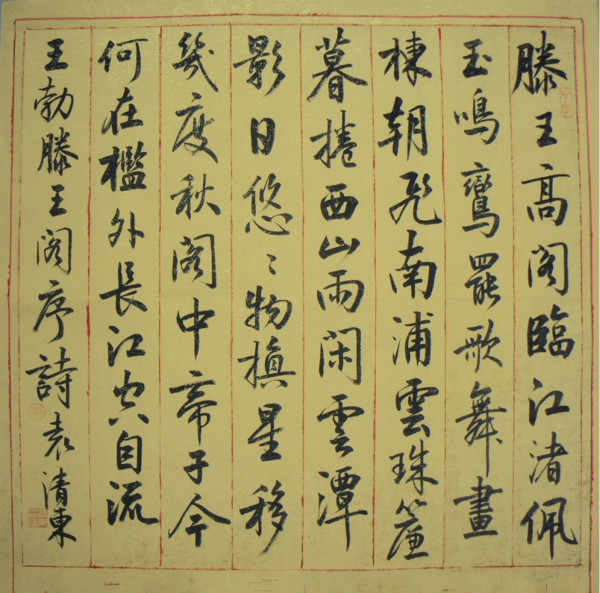 滕王高閣臨江渚佩
玉鳴鸞罷歌舞畫
棟朝飛南浦雲珠簾
暮捲西山雨閑雲潭
影日悠〻物換星移
幾度秋閣中帝子今
何在檻外長江空自流
王勃滕王閣序詩袁清東